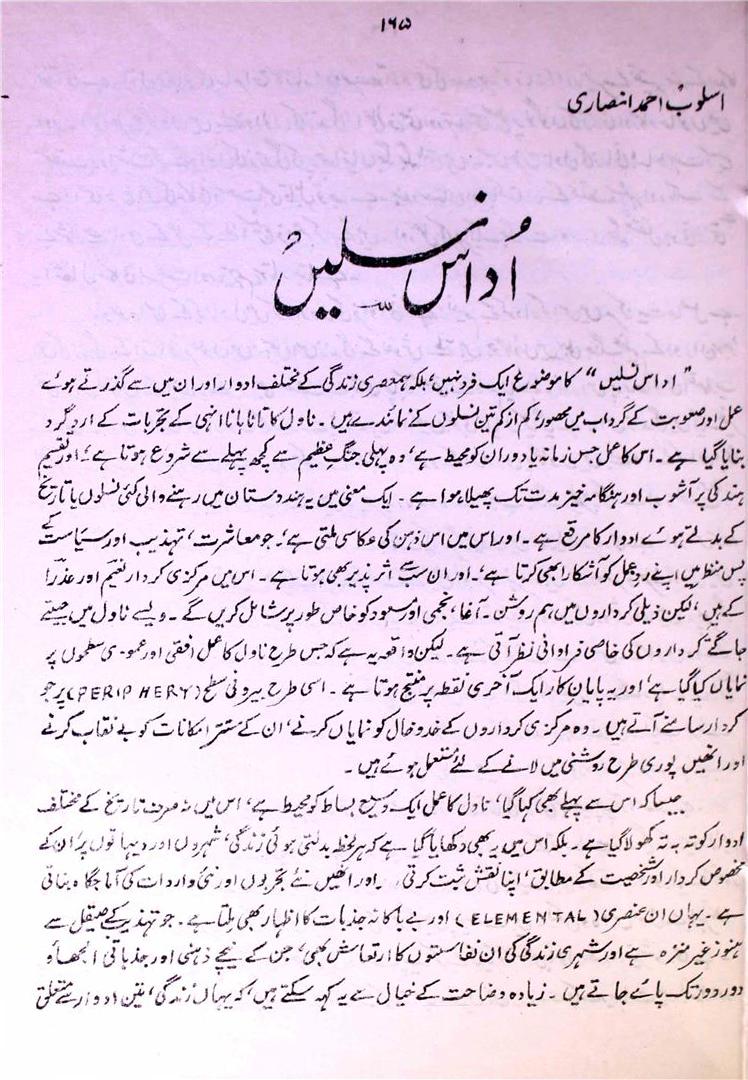 ۱۶۵
اسلوب احمد انصاری
اُداس نسلیں
"اداس نسلیں" کا موضوع ایک فرد نہیں، بلکہ ہمعصری زندگی کے مختلف ادوار اور ان میں سے گذرتے ہوئے
عمل اور صعوبت کے گرداب میں محصور، کم از کم تین نسلوں کے نمائندے ہیں۔ ناول کا تانا بانا انہی کے تجربات کے ارد گرد
بنایا گیا ہے۔ اس کا عمل جس زمانہ یا دوران کو محیط ہے، وہ پہلی جنگِ عظیم سے کچھ پہلے سے شروع ہوتا ہے، اور تقسیم
ہند کی پر آشوب اور ہنگامہ خیز مدت تک پھیلا ہوا ہے۔ ایک معنی میں یہ ہندوستان میں رہنے والی کئی نسلوں یا تاریخ
کے بدلتے ہوئے ادوار کا مرقع ہے۔ اور اس میں اس ذہن کی عکاسی ملتی ہے، جو معاشرت، تہذیب اور سیاست کے
پس منظر میں اپنے ردِ عمل کو آشکارا بھی کرتا ہے، اور ان سب سے اثر پذیر بھی ہوتا ہے۔ اس میں مرکزی کردار نعیم اور عذرا
کے ہیں، لیکن ذیلی کرداروں میں ہم روشن۔ آغا، نجمی اور سعود کو خاص طور پر شامل کریں گے۔ ویسے ناول میں جیتے
جاگتے کرداروں کی خاصی فراوانی نظر آتی ہے۔ لیکن واقعہ یہ ہے کہ جس طرح ناول کا عمل افقی اور عمودی سطحوں پر
نمایاں کیا گیا ہے، اور یہ پایانِ کار ایک آخری نقطہ پر منتج ہوتا ہے۔ اسی طرح بیرونی سطح (PERIPHERY) پر جو
کردار سامنے آتے ہیں۔ وہ مرکزی کرداروں کے خدوخال کو نمایاں کرنے، ان کے مستتر امکانات کو بے نقاب کرنے
اور انھیں پوری طرح روشنی میں لانے کے لئے مستعمل ہوئے ہیں۔
جیسا کہ اس سے پہلے بھی کہا گیا، ناول کا عمل ایک وسیع بساط کو محیط ہے، اس میں نہ صرف تاریخ کے مختلف
ادوار کو تہ بہ تہ کھولا گیا ہے۔ بلکہ اس میں یہ بھی دکھایا گیا ہے کہ ہر لحظہ بدلتی ہوئی زندگی، شہروں اور دیہاتوں پر ان کے
مخصوص کردار اور شخصیت کے مطابق، اپنا نقش ثبت کرتی، اور انھیں نئے تجربوں اور نئی واردات کی آماجگاہ بناتی
ہے۔ یہاں ان عنصری (ELEMENTAL) اور بے باکانہ جذبات کا اظہار بھی ملتا ہے۔ جو تہذیب کے صیقل سے
ہنوز غیر منزہ ہے اور شہری زندگی کی ان نفاستوں کا ارتعاش بھی، جن کے نیچے ذہنی اور جذباتی الجھاؤ
دور دور تک پائے جاتے ہیں۔ زیادہ وضاحت کے خیال سے یہ کہہ سکتے ہیں، کہ یہاں زندگی، تین ادوار سے متعلق